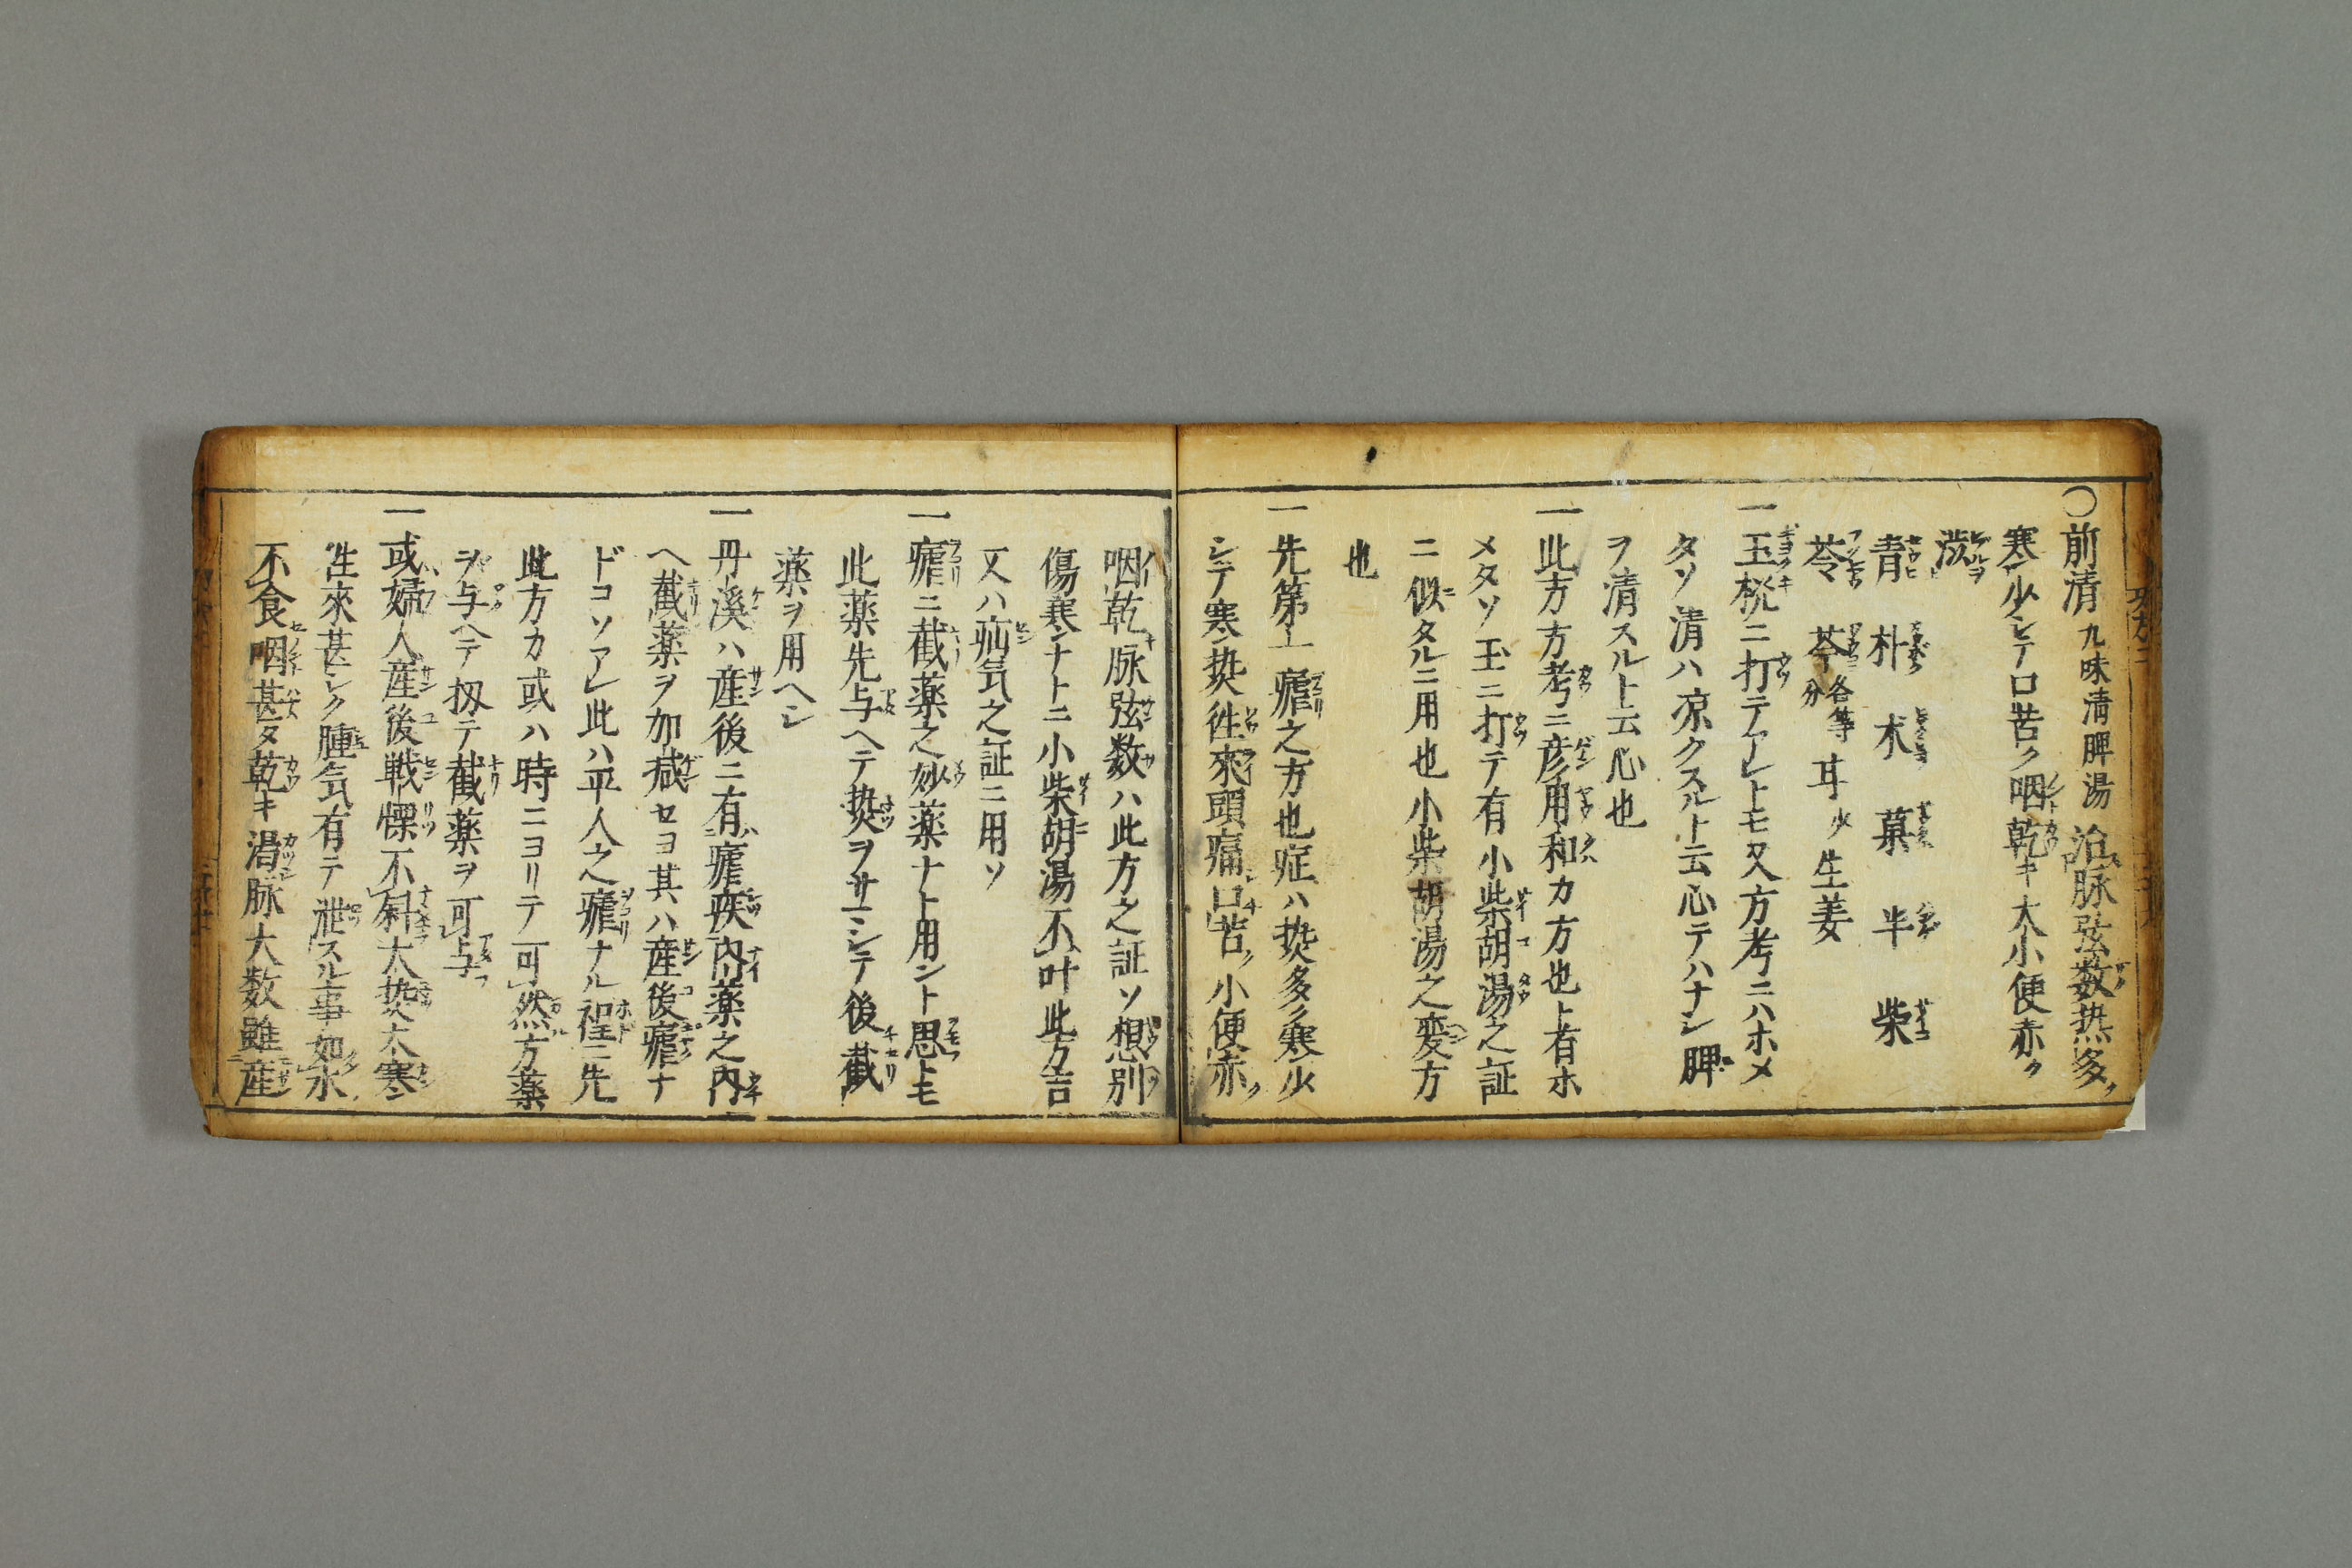 〇前清 九味清脾湯 治脉弦数热多ク
寒少シテ口苦ク咽乾キ大小便赤ク
澁
青 朴 朮 菓 半 柴
苓 芩 各等分 耳少 生姜
一玉枕ニ打テアレトモ又方考ニハホメ
タソ清ハ凉クスルト云心テハナシ脾
ヲ清スルト云心也
一此方方考ニ彦用和カ方也ト有ホ
メタソ玉ニ打テ有小柴胡湯之証
ニ似タルニ用也小柴胡湯之変方
也
一先第一瘧之方也症ハ热多ク寒少
シテ寒热徃來頭痛口苦ク小便赤ク
咽乾キ脉弦数ハ此方之証ソ想別
傷寒ナトニ小柴胡湯不叶此方吉
又ハ疝気之証ニ用ソ
一瘧ニ截薬之妙薬ナト用ント思トモ
此薬先与ヘテ热ヲサマシテ後截
薬ヲ用ヘシ
一丹溪ハ産後ニ有瘧疾内薬之内
ヘ截薬ヲ加减セヨ其ハ産後瘧ナ
ドコソアレ此ハ平人之瘧ナル程ニ先
此方カ或ハ時ニヨリテ可然方薬
ヲ与ヘテ扨テ截薬ヲ可与
一或婦人産後戦慄不斜大热大寒
徃來甚シク腫気有テ泄スル事如水
不食咽甚タ乾キ渇脉大数雖産